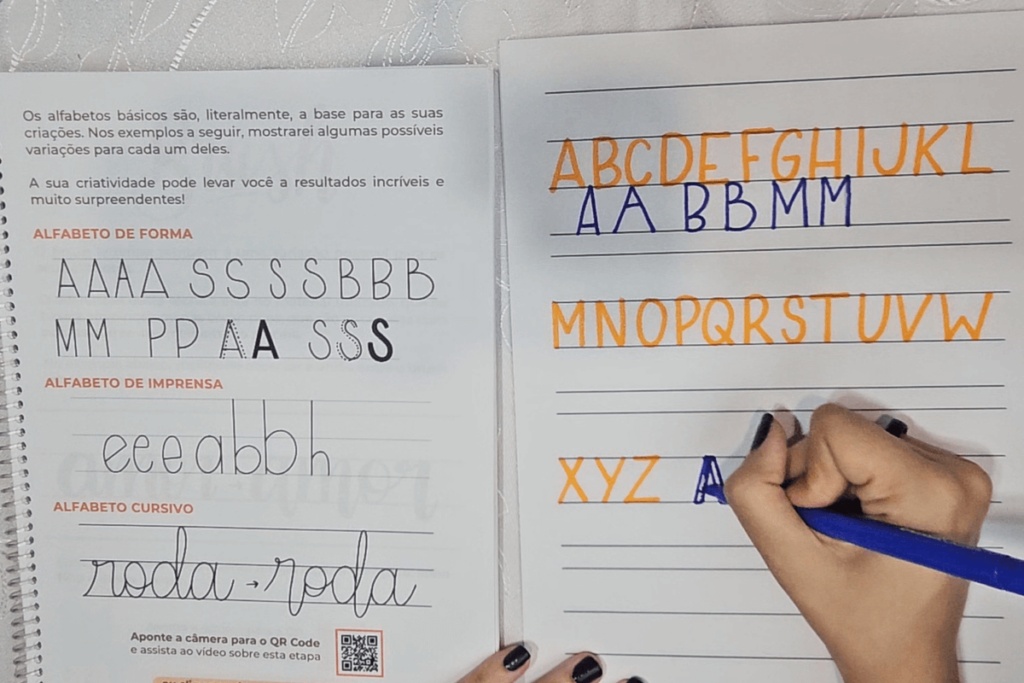 Os alfabetos básicos são, literalmente, a base para as suas
criações. Nos exemplos a seguir, mostrarei algumas possíveis
variações para cada um deles.
A sua criatividade pode levar você a resultados incríveis e
muito surpreendentes!
ALFABETO DE FORMA
AAAA SSSSBBB
MM PP AA SSS
ALFABETO DE IMPRENSA
eeeabbh
ALFABETO CURSIVO
roda→roda
Aponte a câmera para o QR Code
e assista ao vídeo sobre esta etapa
ABCDEFGHIJKL
AA BBMM
MNOPQRSTUVW
XYZ A